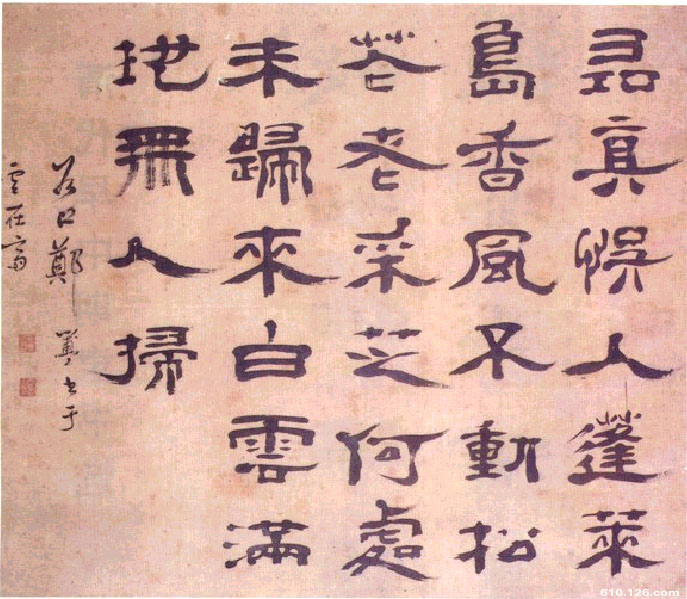 尋真悞入蓬萊
島香風不動松
花老采芝何處
未歸來白雲滿
地無人掃
谷口鄭簠书于
610.126.com